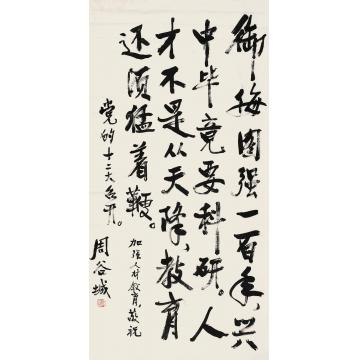 御侮图强一百年，兴
中毕竟要科研。人
才不是从天降，教育
还须猛着鞭。
加强人材教育，敬祝
党的十二大召开。
周谷城